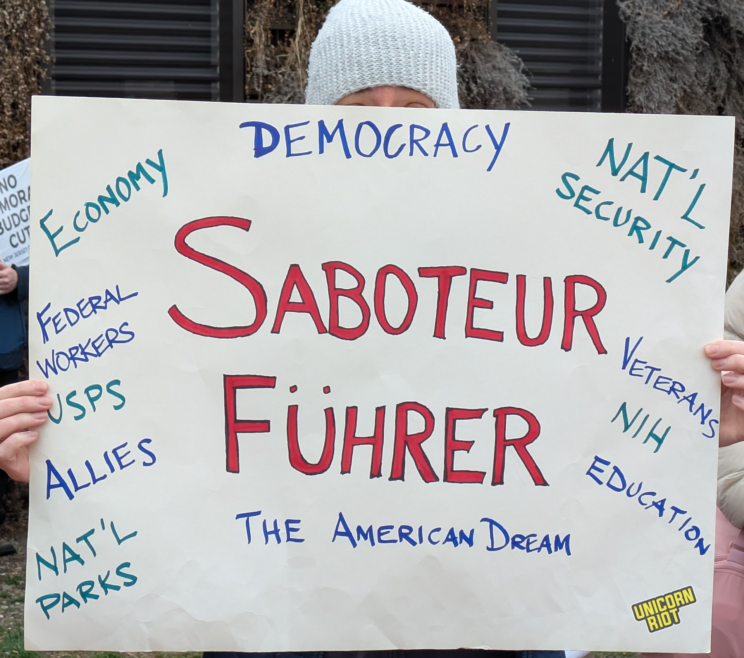 DEMOCRACY
ECONOMY
NAT'L
SECURITY
SABOTEUR
FÜHRER
FEDERAL
WORKERS
USPS
ALLIES
NAT'L
PARKS
VETERANS
NIH
EDUCATION
THE AMERICAN DREAM
UNICORN
RIOT
NO
MORA
BUDG
CUT